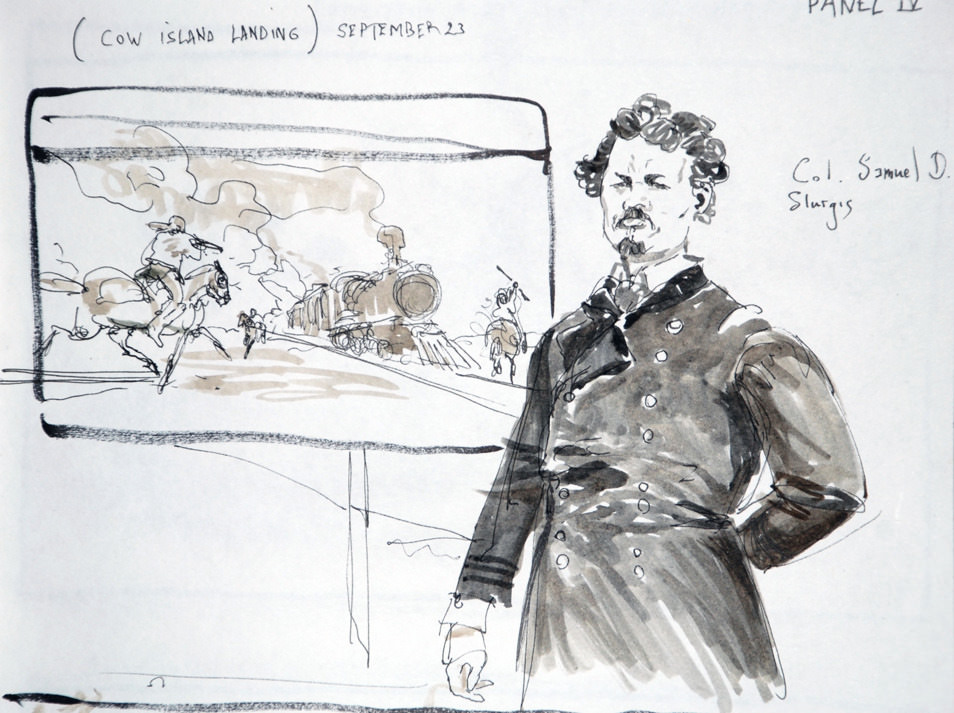 PANEL IV
(COW ISLAND LANDING) SEPTEMBER 23
Col. Samuel D.
Sturgis